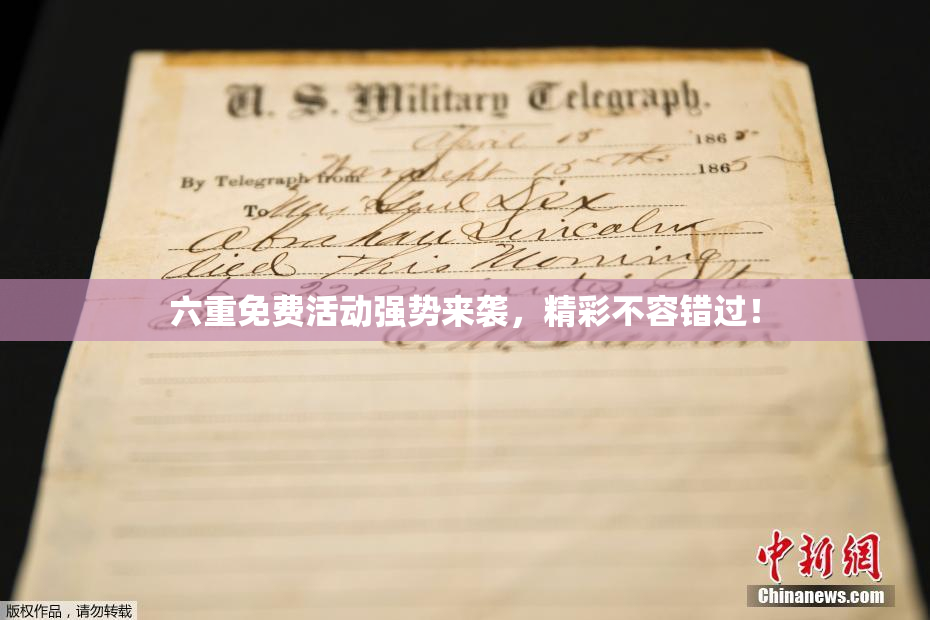 U. S. Military Telegraph.
April 15 1865
By Telegraph from War Dept 15th 1865
To Maj Genl Dix
Abraham Lincoln
died This Morning
at 22 minutes after
六重免费活动强势来袭，精彩不容错过！
E. M. Stanton
中新网
版权作品，请勿转载
Chinanews.com